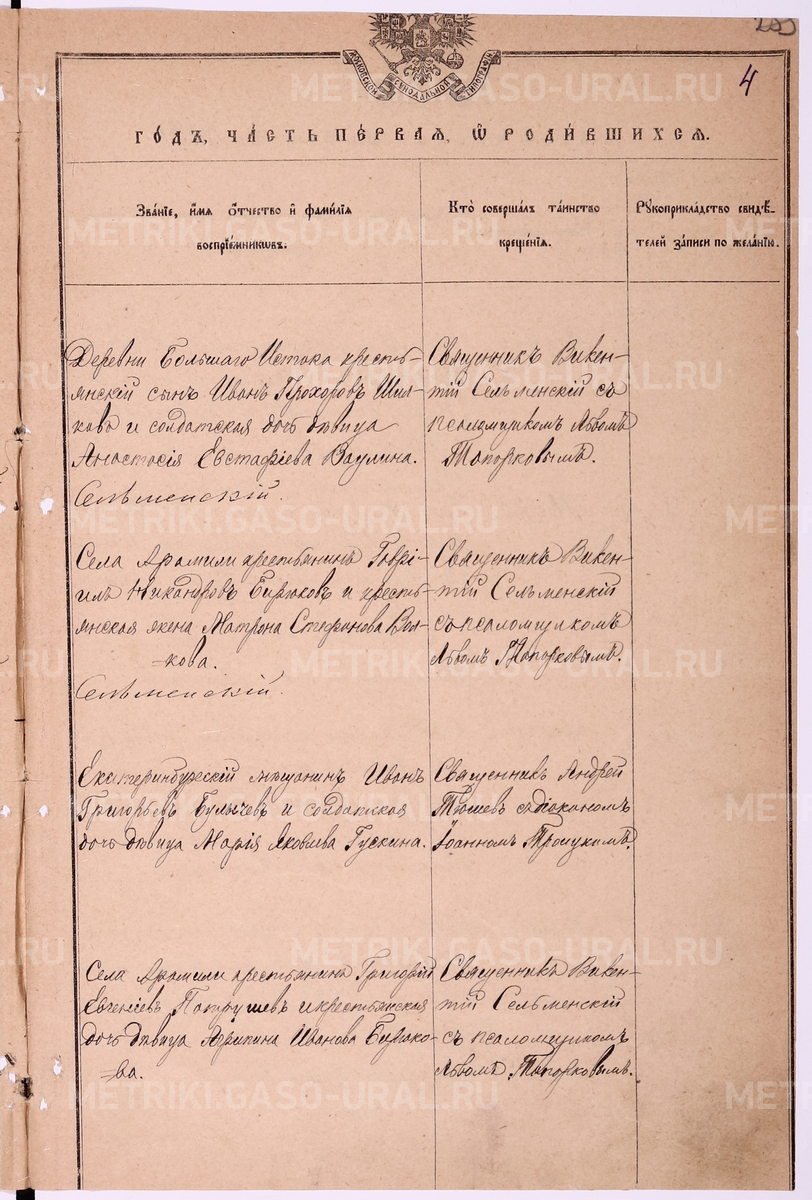 МОСКОВСКОЙ СѴНОДАЛЬНОЙ ТИПОГРАФІИ
4
ГОДЪ, ЧАСТЬ ПЕРВАЯ, Ѿ РОДИВШИХСЯ.
Званіе, имя отчество и фамилія
воспріемниковъ.
Кто совершалъ таинство
крещенія.
Рукоприкладство свидѣ-
телей записи по желанію.
Деревни Большаго Истока кресть-
янскій сынъ Иванъ Прохоровъ Шил-
ковъ и солдатская дочь дѣвица
Анастасія Евстафіева Ваулина.
Сельменскій.
Священникъ Викен-
тій Сельменскій съ
псаломщикомъ Львомъ
Топорковымъ.
Села Арамили крестьянинъ Гаврі-
илъ Никандровъ Бирюковъ и кресть-
янская жена Матрона Стефанова Вол-
кова.
Сельменскій.
Священникъ Викен-
тій Сельменскій
съ псаломщикомъ
Львомъ Топорковымъ.
Екатеринбургскій мѣщанинъ Иванъ
Григорьевъ Булычевъ и солдатская
дочь дѣвица Марія Яковлева Гускина.
Священникъ Андрей
съ діакономъ
Іоанномъ Троицкимъ.
Села Арамили крестьянинъ Григорій
Евгеніевъ Патрушевъ и крестьянская
дочь дѣвица Агрипина Иванова Бирюко-
ва.
Священникъ Викен-
тій Сельменскій
съ псаломщикомъ
Львомъ Топорковымъ.
METRIKI.GASO-URAL.RU